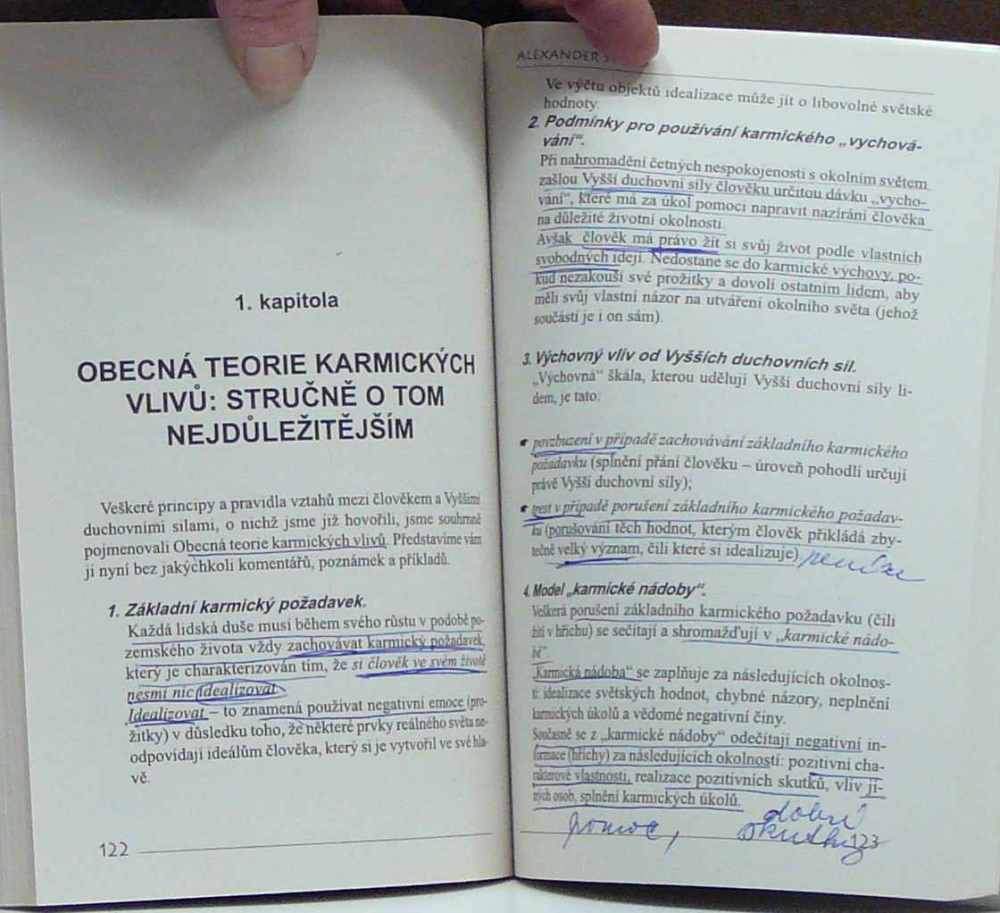 1. kapitola
OBECNÁ TEORIE KARMICKÝCH
VLIVŮ: STRUČNĚ O TOM
NEJDŮLEŽITĚJŠÍM
Veškeré principy a pravidla vztahů mezi člověkem a Vyššími
duchovními silami, o nichž jsme již hovořili, jsme souhrnně
pojmenovali Obecná teorie karmických vlivů. Představíme vám
ji nyní bez jakýchkoli komentářů, poznámek a příkladů.
1. Základní karmický požadavek.
Každá lidská duše musí během svého růstu v podobě po-
zemského života vždy zachovávat karmický požadavek,
který je charakterizován tím, že si člověk ve svém životě
nesmí nic idealizovat.
Idealizovat – to znamená používat negativní emoce (pro-
žitky) v důsledku toho, že některé prvky reálného světa ne-
odpovídají ideálům člověka, který si je vytvořil ve své hla-
vě.
122
ALEXANDER
Ve výčtu objektů idealizace může jít o libovolné světské
hodnoty.
2. Podmínky pro používání karmického „vychová-
vání“.
Při nahromadění četných nespokojeností s okolním světem
zašlou Vyšší duchovní síly člověku určitou dávku „vycho-
vání“, které má za úkol pomoci napravit nazírání člověka
na důležité životní okolnosti.
Avšak člověk má právo žít si svůj život podle vlastních
svobodných idejí. Nedostane se do karmické výchovy, po-
kud nezakouší své prožitky a dovolí ostatním lidem, aby
měli svůj vlastní názor na utváření okolního světa (jehož
součástí je i on sám).
3. Výchovný vliv od Vyšších duchovních sil.
„Výchovná“ škála, kterou udělují Vyšší duchovní síly li-
dem, je tato:
povzbuzení v případě zachovávání základního karmického
požadavku (splnění přání člověku – úroveň pohodlí určují
právě Vyšší duchovní síly);
trest v případě porušení základního karmického požadav-
ku (porušování těch hodnot, kterým člověk přikládá zby-
tečně velký význam, čili které si idealizuje).
4. Model „karmické nádoby“.
Veškerá porušení základního karmického požadavku (čili
žití v hříchu) se sečítají a shromažďují v „karmické nádo-
bě“.
„Karmická nádoba“ se zaplňuje za následujících okolnos-
tí: idealizace světských hodnot, chybné názory, neplnění
karmických úkolů a vědomé negativní činy.
Současně se z „karmické nádoby“ odečítají negativní in-
formace (hříchy) za následujících okolností: pozitivní cha-
rakterové vlastnosti, realizace pozitivních skutků, vliv ji-
ných osob, splnění karmických úkolů.
pomoc, dobré
skutky
123